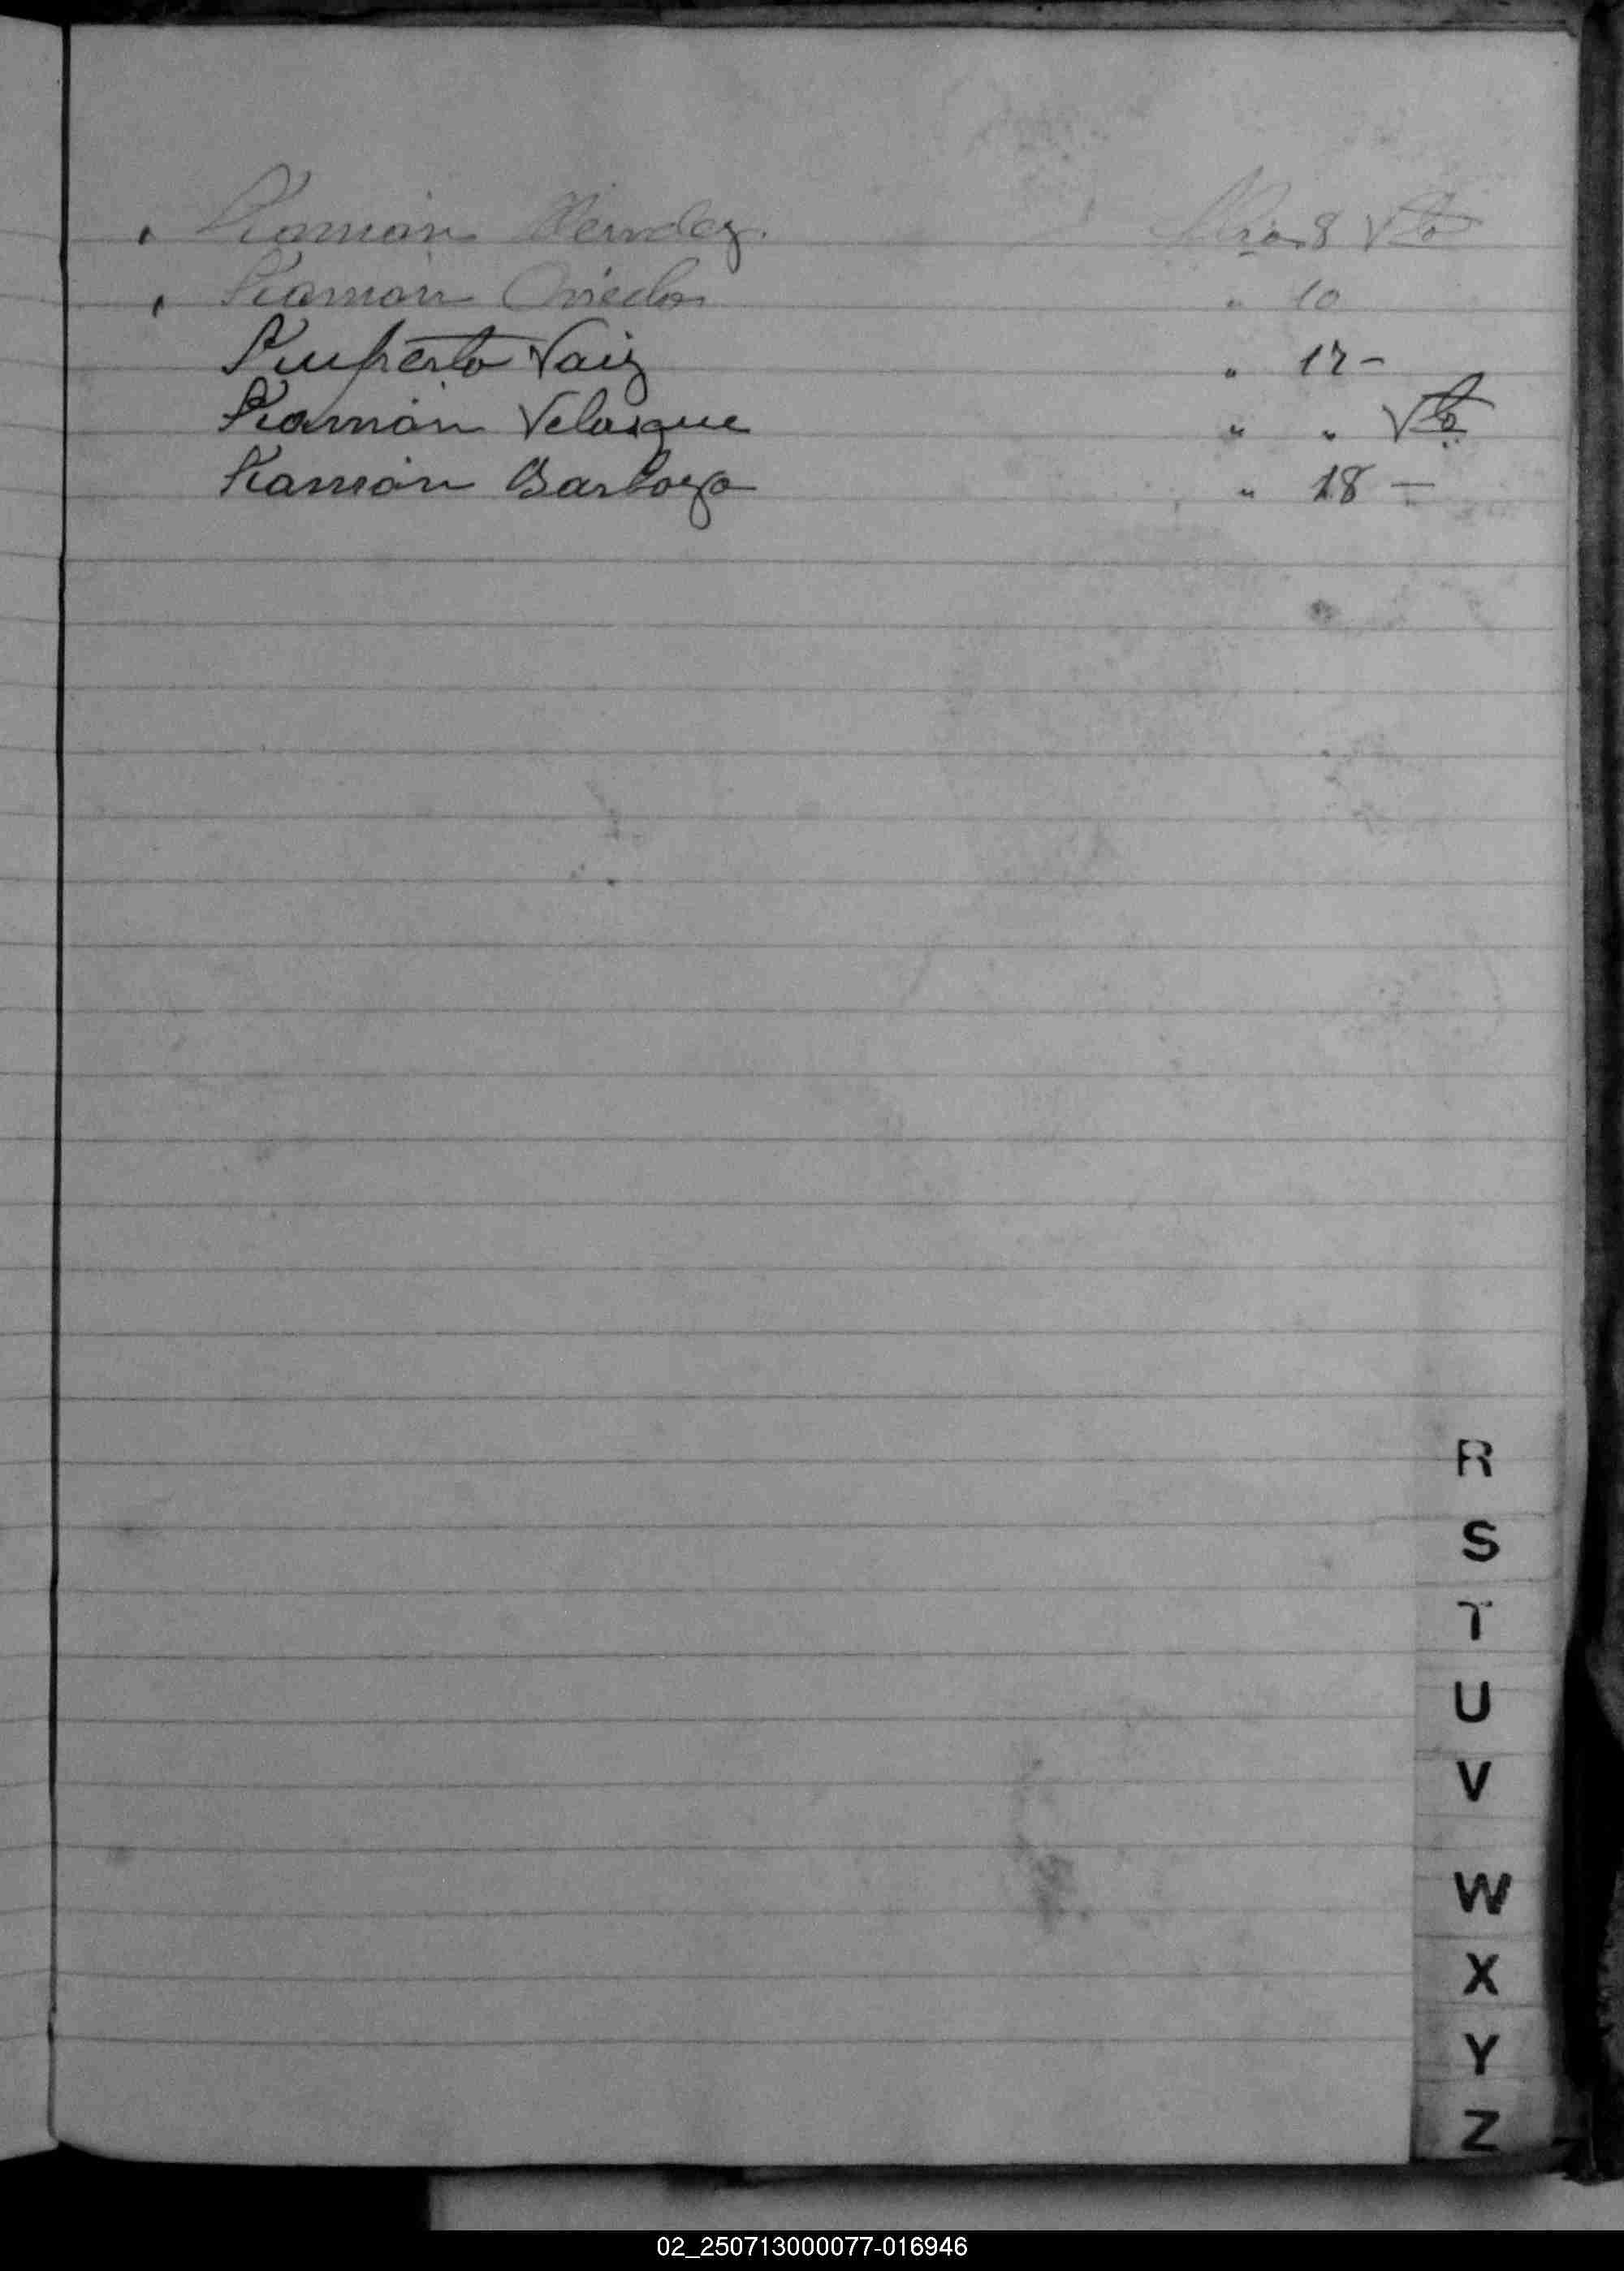 Ramón
Ramón Oviedo " 10
Ruperto Vaiz " 17 -
Ramón Velasque " " Vto
Ramón Barboza " 18 —
R
S
T
U
V
W
X
Y
Z
02_250713000077-016946